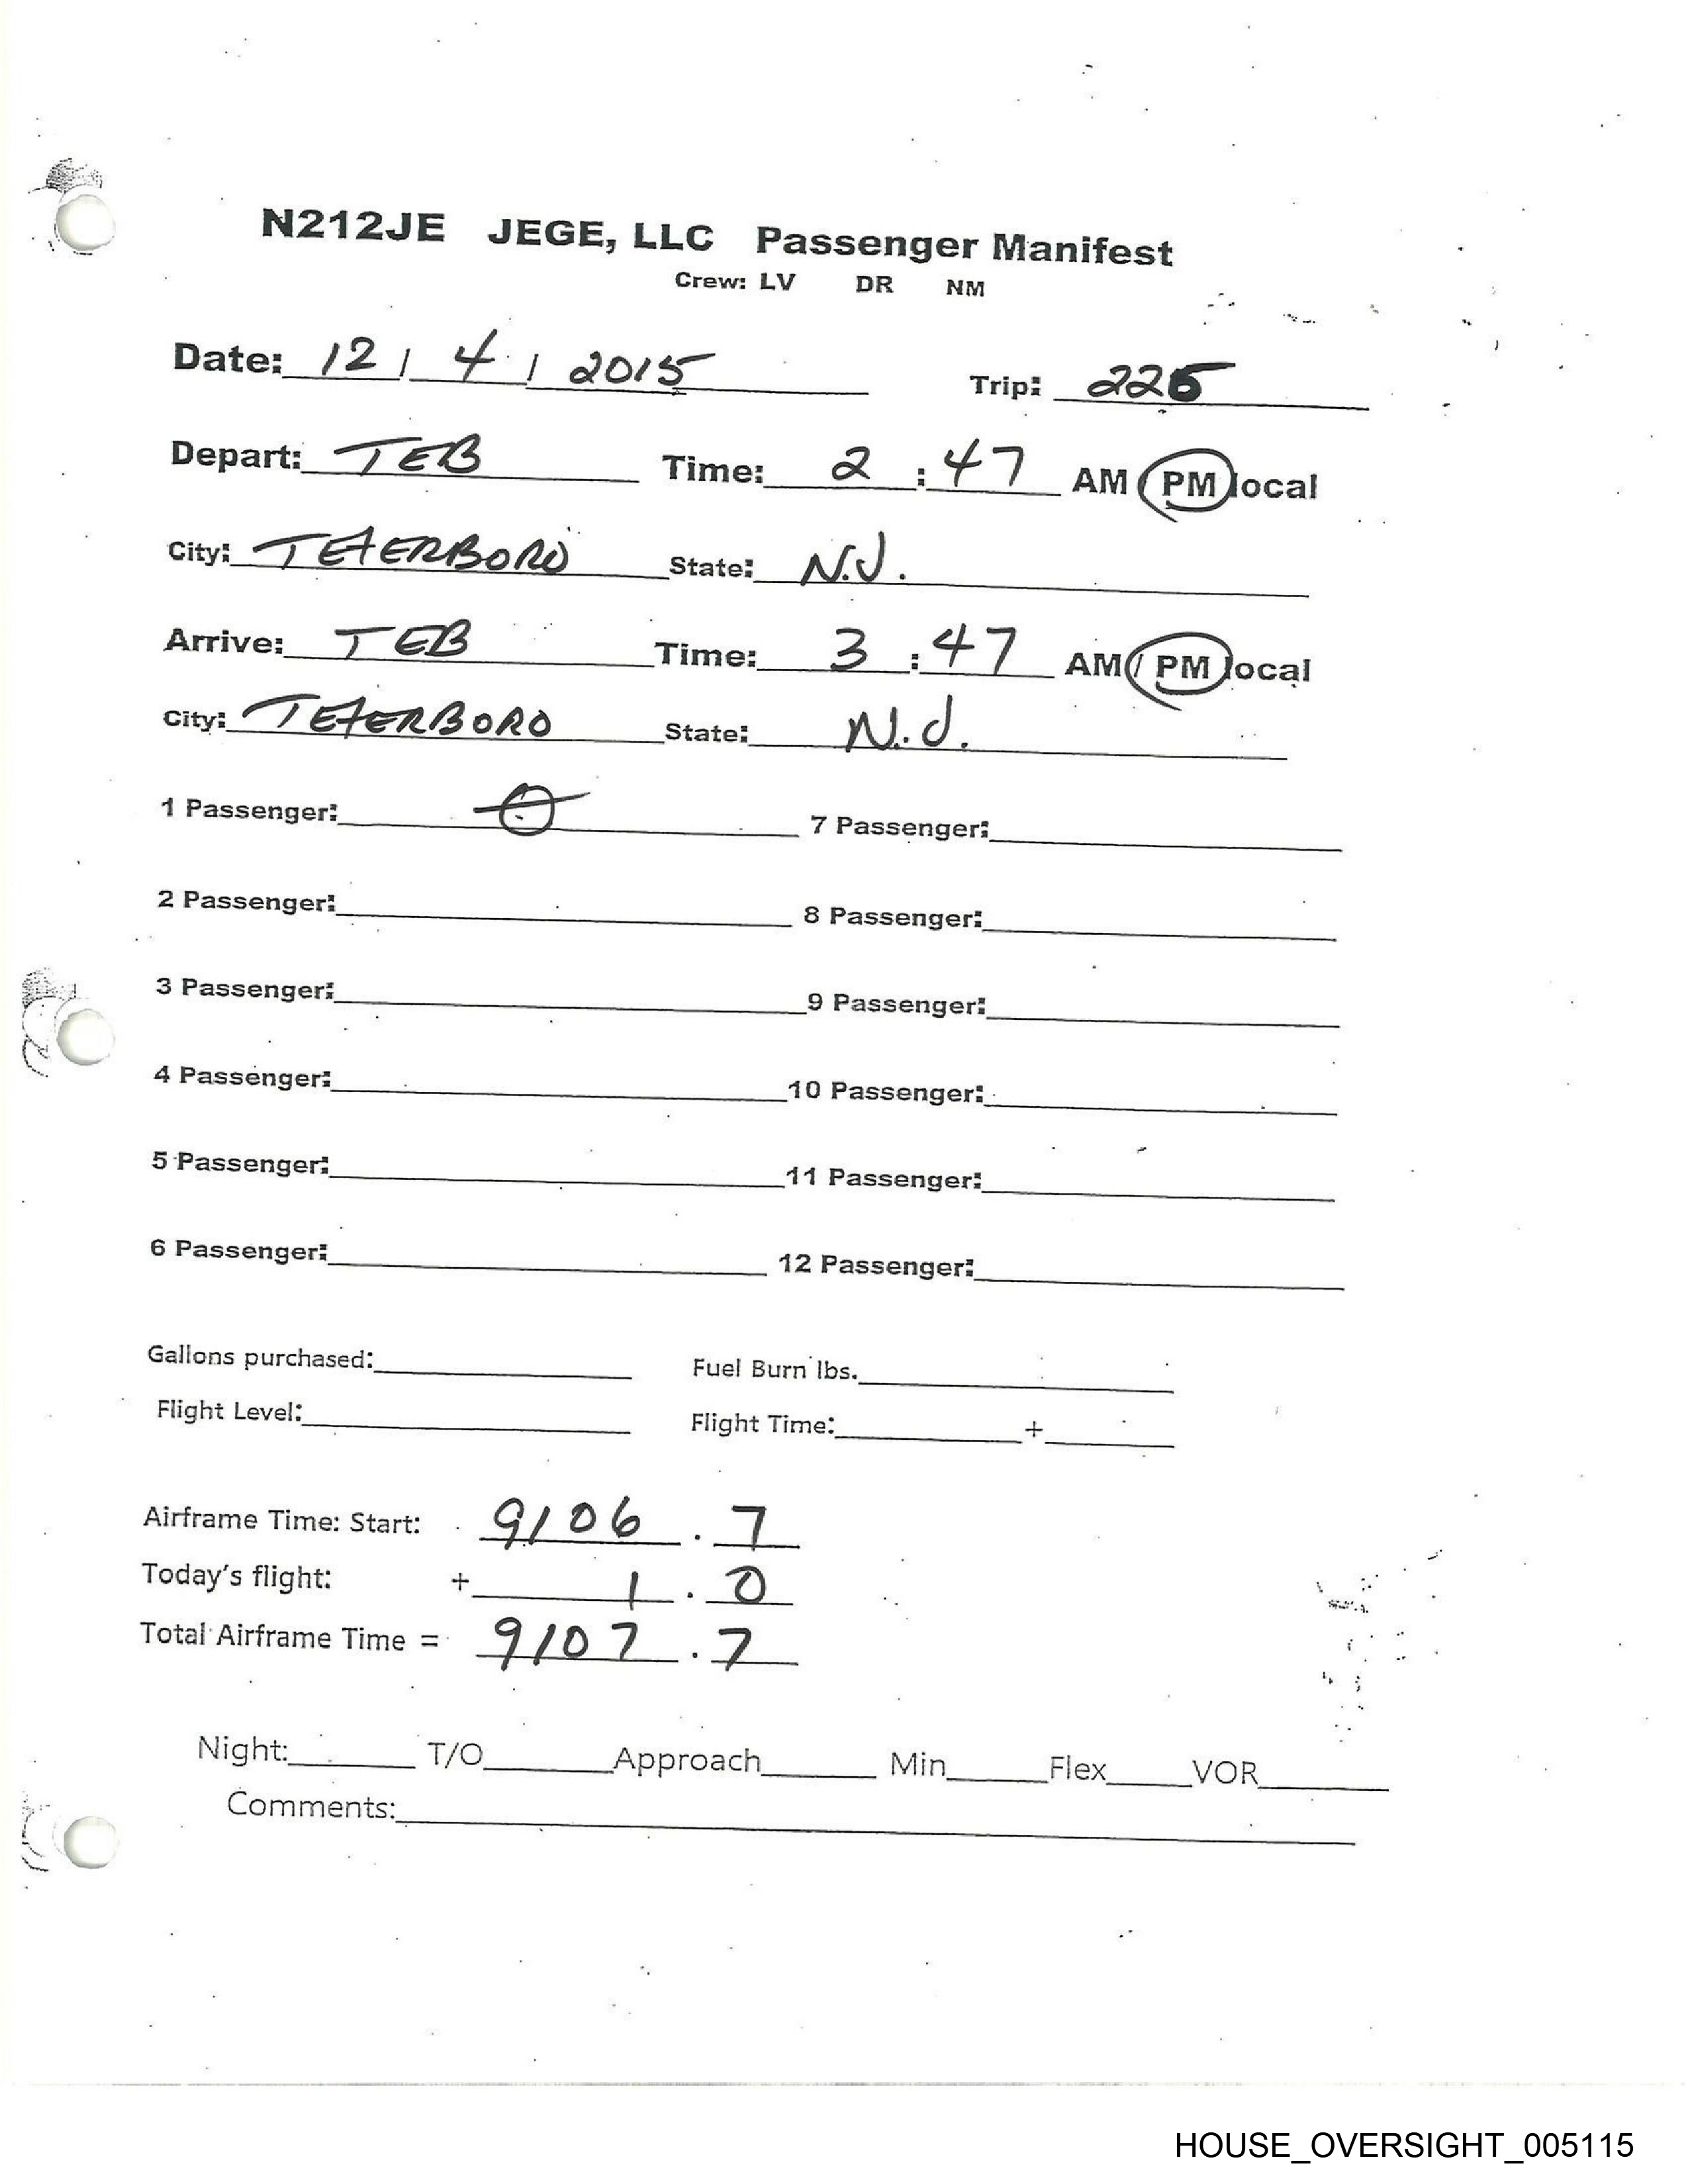 N212JE JEGE, LLC Passenger Manifest
Crew: LV DR NM
Date: 12 / 4 / 2015 Trip: 225
Depart: TEB Time: 2 : 47 AM / PM local
City: TETERBORO State: N.J.
Arrive: TEB Time: 3 : 47 AM / PM local
City: TETERBORO State: N.J.
1 Passenger: 0 7 Passenger:
2 Passenger: 8 Passenger:
3 Passenger: 9 Passenger:
4 Passenger: 10 Passenger:
5 Passenger: 11 Passenger:
6 Passenger: 12 Passenger:
Gallons purchased: Fuel Burn lbs.
Flight Level: Flight Time: +
Airframe Time: Start: 9106 . 7
Today's flight: + 1 . 0
Total Airframe Time = 9107 . 7
Night: T/O Approach Min Flex VOR
Comments:
HOUSE_OVERSIGHT_005115